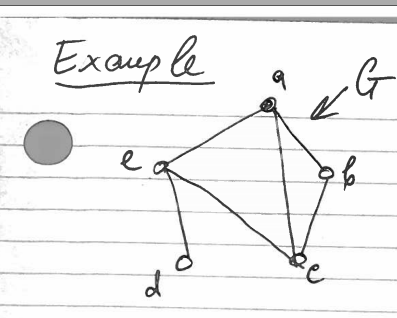 Example
a
G
e
b
d
c